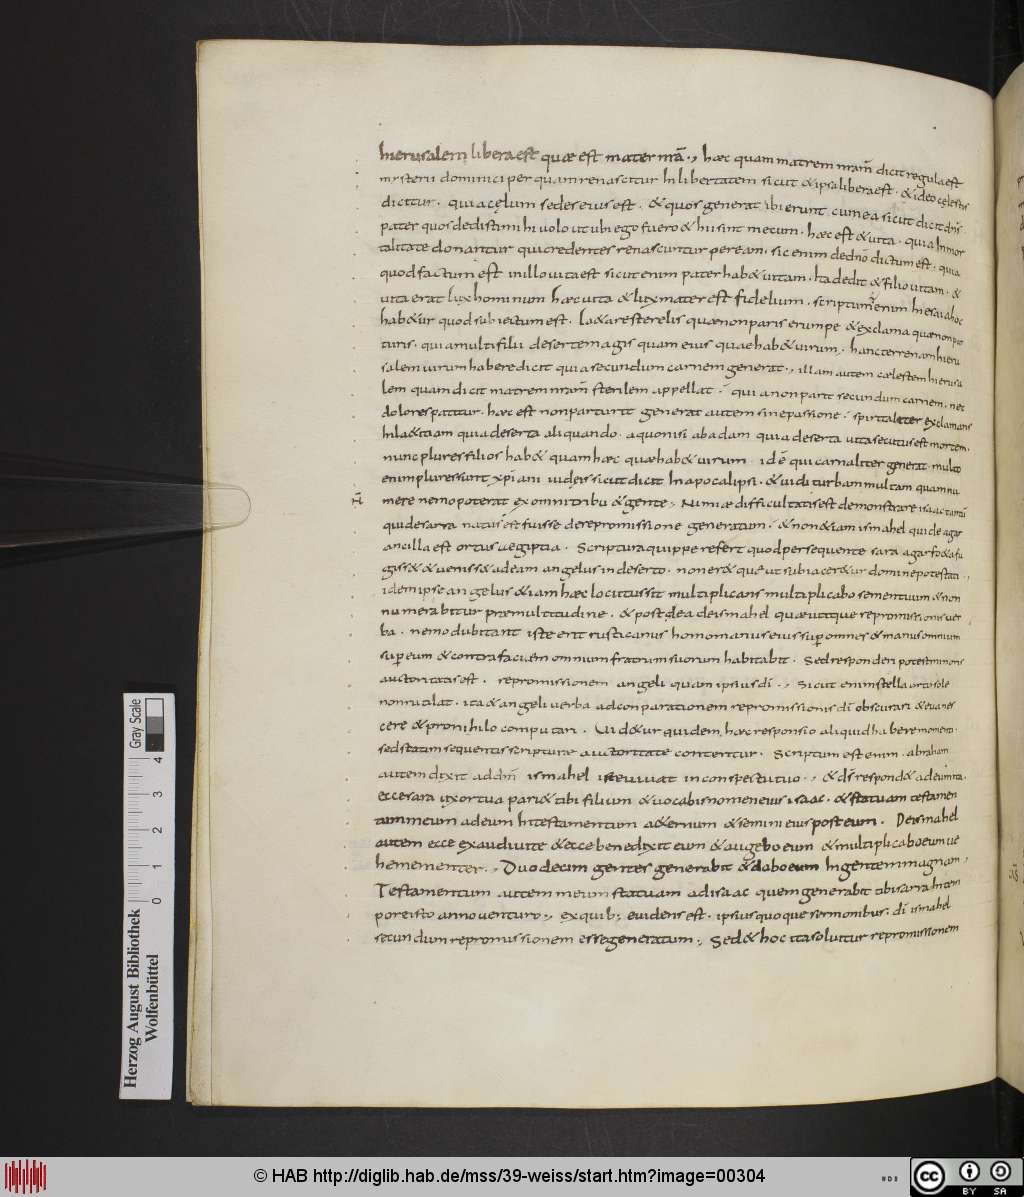 hierusalem libera est quæ est mater nrā., hæc quam matrem nram̄ dicit regula est
mysterii dominici per quam renascitur In libertatem sicut & ipsa libera est. & ideo cęlestis
dicitur. quia cęlum sedes eius est. & quos generat ibi erunt cum ea sicut dicit dns̄
pater quos dedisti mihi volo ut ubi ego fuero & hii sint mecum. hæc est & vita. quia Inmor
talitate donantur qui credentes renascuntur per eam. sic enim de dnō dictum est. quia
quod factum est in illo vita est sicut enim pater hab& vitam. Ita dedit & filio vitam. &
vita erat lux hominum hæc vita & lux mater est fidelium. scriptum enim In esaia hoc
hab&ur quod subiectum est. La&are sterelis quæ non paris erumpe & exclama quæ non par
turis. quia multi filii desertę magis quam eius quae hab& virum. hanc terrenam hieru
salem virum habere dicit quia secundum carnem generat., illam autem cælestem hierusa
lem quam dicit matrem nram̄ sterilem appellat. quia non parit secundum carnem. nec
dolores patitur. hæc est non parturit generat autem sine passione. spiritaliter exclamans
hila&&iam quia deserta aliquando. a quo nisi ab adam quia deserta vita secutus est mortem.
nunc plures filios hab& quam hæc quæ hab& virum. id ē qui carnaliter generat. multo
enim plures sunt xp̄iani iudęis sicut dicit In apocalipsi. & vidi turbam multam quam nu
mere nemo poterat ex omni tribu & gente., Numæ difficultatis est demonstrare isaac tantū
qui de sarra natus est fuisse de repromissione generatum. & non &iam ismahel qui de agar
ancilla est ortus aegiptia. Scriptura quippe refert quod persequente sara agar fo&a fu
giss& & veniss& ad eam angelus in deserto. moner& quę ut subiacer&ur dominę potestati.,
idem ipse angelus &iam hæc locitus sit multiplicans multiplicabo semen tuum & non
numerabitur præ multitudine. & post de a de ismahel quæ utique repromissionis ver
ba. nemo dubitant iste erit rusticanus homo manus eius sup omnes & manus omnium
sup eum & contra faciem omnium fratrum suorum habitabit. Sed responderi potest minoris
auctoritatis est. repromissionem angeli quam ipsius dī., Sicut enim stella orto sole
non rutilat. ita & angeli verba ad conparationem repromissionis dī obscurari & euanes
cere & pro nihilo computari. Vid&ur quidem hæc responsio aliquid habere momenti.
sed statim sequentis scripturæ auctoritate conteritur. Scriptum est enim. abraham
autem dixit ad dm̄ ismahel iste vivat in conspectu tuo., & ds̄ respond& ad eum ita.
ecce sara uxor tua pari& tibi filium & vocabis nomen eius isaac. & statuam testamen
tum meum ad eum In testamentum a&ernum & semini eius post eum. De ismahel
autem ecce exaudivi te & ecce benedixit eum & augebo eum & multiplicabo eum ve
hementer., Duodecim gentes generabit & dabo eum In gentem magnam.
Testamentum autem meum statuam ad isaac quem generabit tibi sarra In tem
pore isto anno venturo., ex quib; euidens est. ipsius quoque sermonibus. dī ismahel
secundum repromissionem esse generatum; Sed & hoc ita soluitur repromissionem
Herzog August Bibliothek
Wolfenbüttel
0 1 2 3 4
Gray Scale
© HAB http://diglib.hab.de/mss/39-weiss/start.htm?image=00304
cc BY SA